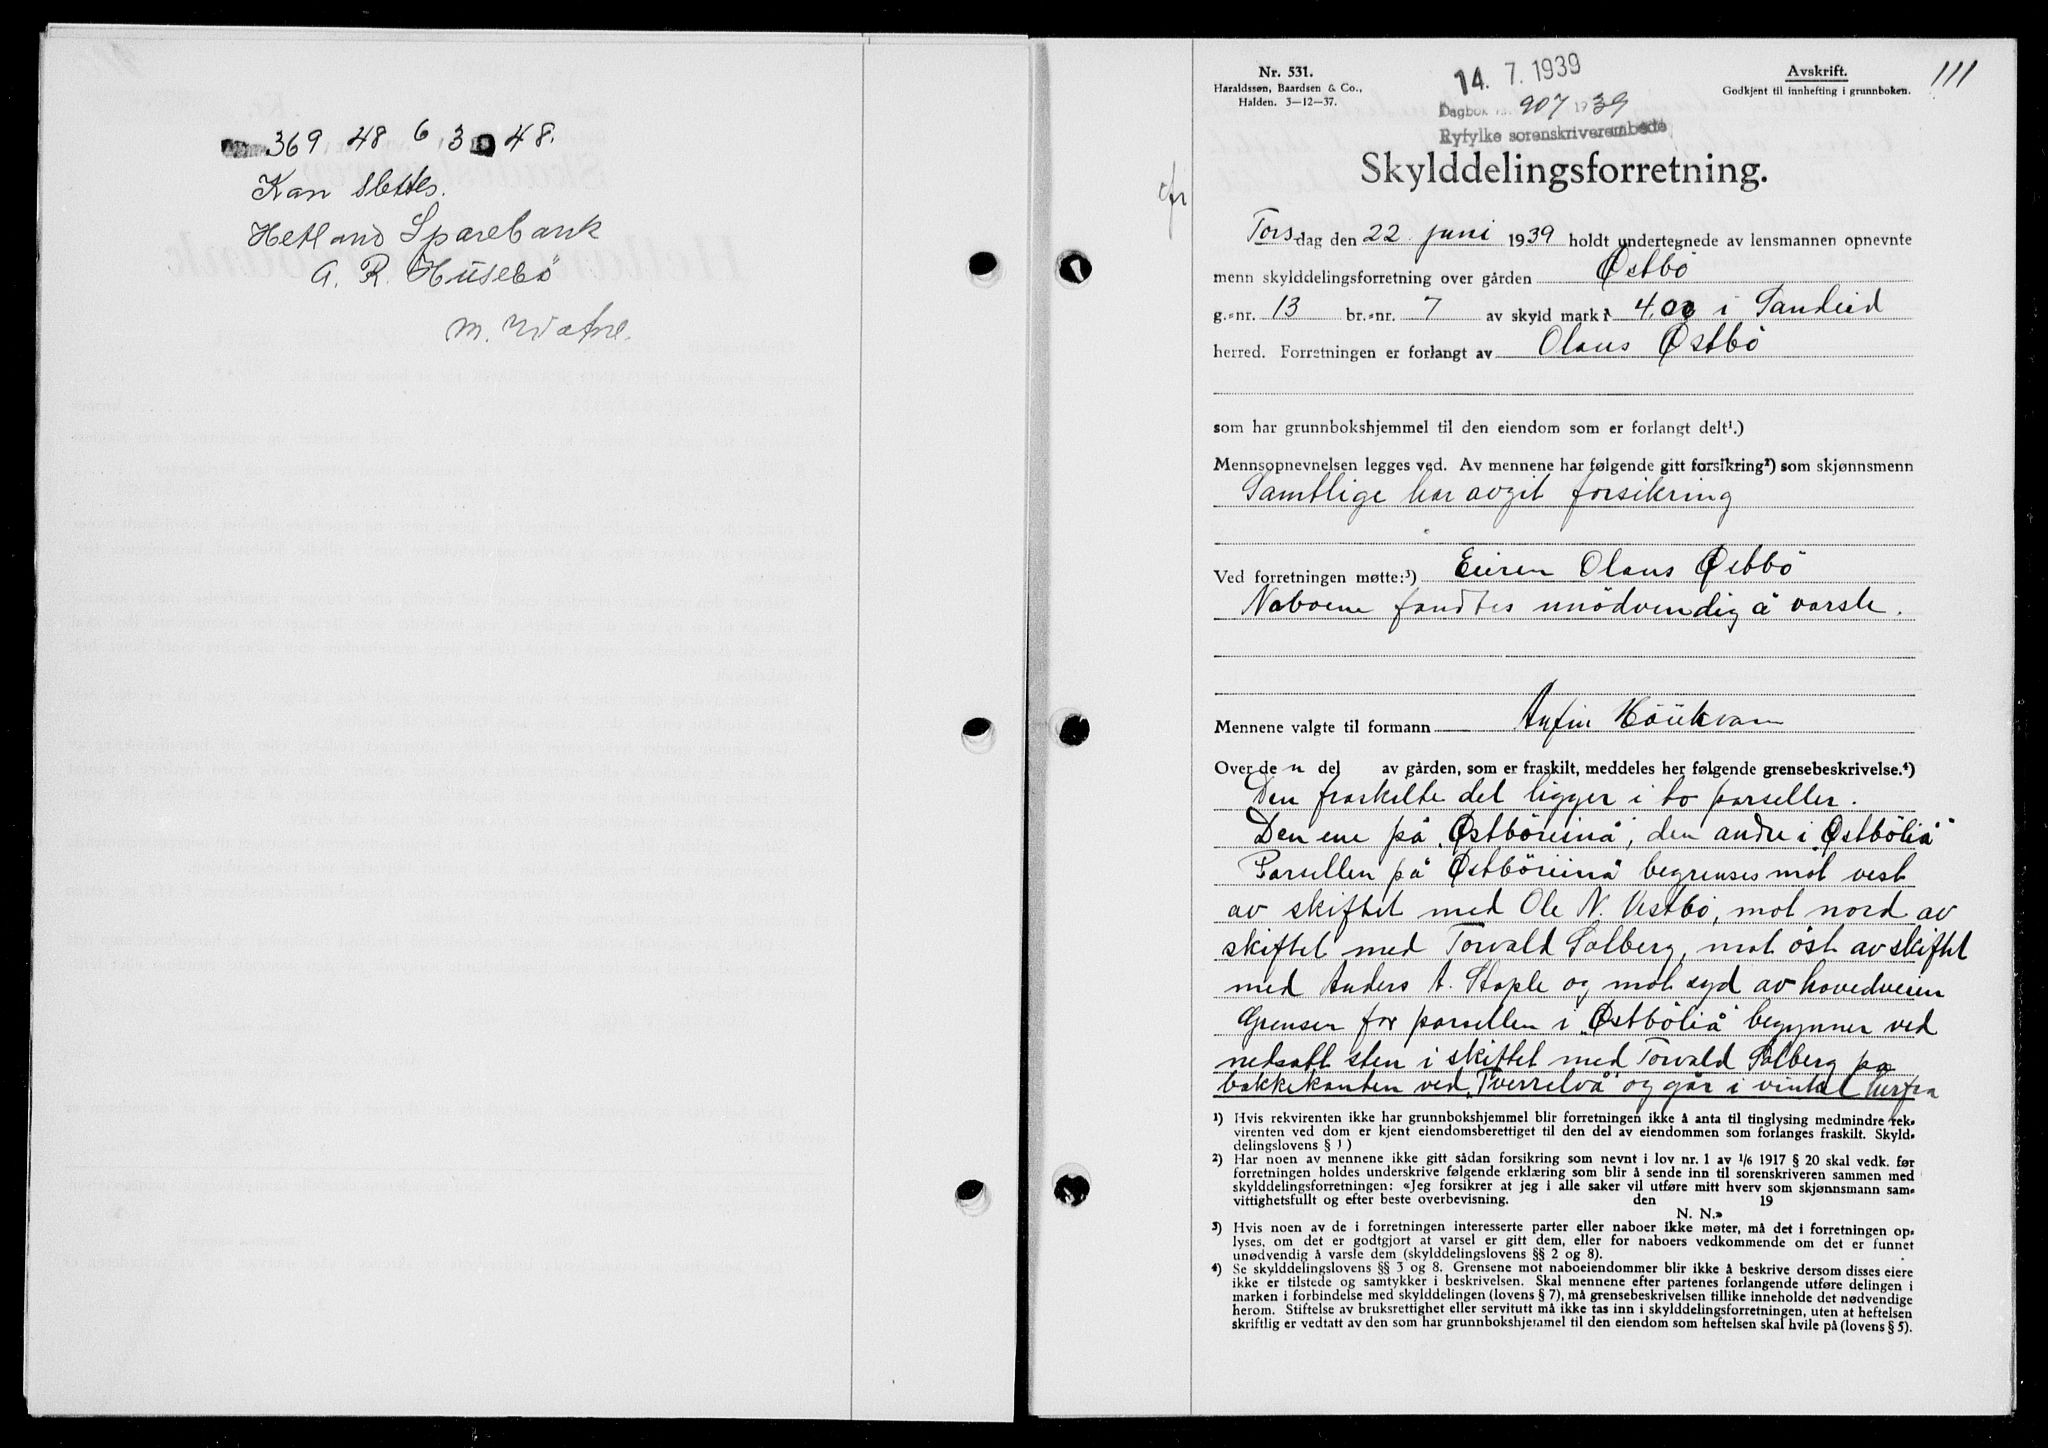 369 48 6/3 48.
Kan slettes.
Hetland Sparebank
A. R. Husebö
Nr. 531.
Haraldssøn, Baardsen & Co.,
Halden. 3-12-37.
14. 7. 1939
Dagbok nr. 907 1939
Ryfylke sorenskriverembede
Avskrift.
Godkjent til innhefting i grunnboken.
111
Skylddelingsforretning.
cfr
Torsdag den 22 juni 1939 holdt undertegnede av lensmannen opnevnte
menn skylddelingsforretning over gården Østbö
g.-nr. 13 br.-nr. 7 av skyld mark 4,00 i Sandeid
herred. Forretningen er forlangt av Olaus Østbö
som har grunnbokshjemmel til den eiendom som er forlangt delt¹.)
Mennsopnevnelsen legges ved. Av mennene har følgende gitt forsikring²) som skjønnsmenn
Samtlige har avgit forsikring
Ved forretningen møtte:³) Eieren Olaus Østbö
Naboene fandtes unödvendig å varsle.
Mennene valgte til formann Anfin
Over den del av gården, som er fraskilt, meddeles her følgende grensebeskrivelse.⁴)
Den fraskilte del ligger i to parseller.
Den ene på „Østböreinå", den andre i „Østböliå"
Parsellen på Østböreinå" begrenses mot vest
av skiftet med Ole N. Vestbö, mot nord av
skiftet med Torvald Solberg, mot öst av skiftet
med Anders A. Stople og mot syd av hovedveien
Grensen for parsellen i „Østböliå" begynner ved
nedsatt sten i skiftet med Torvald Solberg på
bakkekanten ved „Tverrelvå" og går i vinkel herfra
¹) Hvis rekvirenten ikke har grunnbokshjemmel blir forretningen ikke å anta til tinglysing medmindre rek-
virenten ved dom er kjent eiendomsberettiget til den del av eiendommen som forlanges fraskilt. Skyld-
delingslovens § 1)
²) Har noen av mennene ikke gitt sådan forsikring som nevnt i lov nr. 1 av 1/6 1917 § 20 skal vedk. før
forretningen holdes underskrive følgende erklæring som blir å sende inn til sorenskriveren sammen med
skylddelingsforretningen: «Jeg forsikrer at jeg i alle saker vil utføre mitt hverv som skjønnsmann sam-
vittighetsfullt og efter beste overbevisning. den 19
N. N.»
³) Hvis noen av de i forretningen interesserte parter eller naboer ikke møter, må det i forretningen op-
lyses, om det er godtgjort at varsel er gitt dem, eller for naboers vedkommende om det er funnet
unødvendig å varsle dem (skylddelingslovens §§ 2 og 8).
⁴) Se skylddelingslovens §§ 3 og 8. Grensene mot naboeiendommer blir ikke å beskrive dersom disses eiere
ikke er tilstede og samtykker i beskrivelsen. Skal mennene efter partenes forlangende utføre delingen i
marken i forbindelse med skylddelingen (lovens § 7), må grensebeskrivelsen tillike inneholde det nødvendige
herom. Stiftelse av bruksrettighet eller servitutt må ikke tas inn i skylddelingsforretningen, uten at heftelsen
skriftlig er vedtatt av den som har grunnbokshjemmel til den eiendom som heftelsen skal hvile på (lovens § 5).